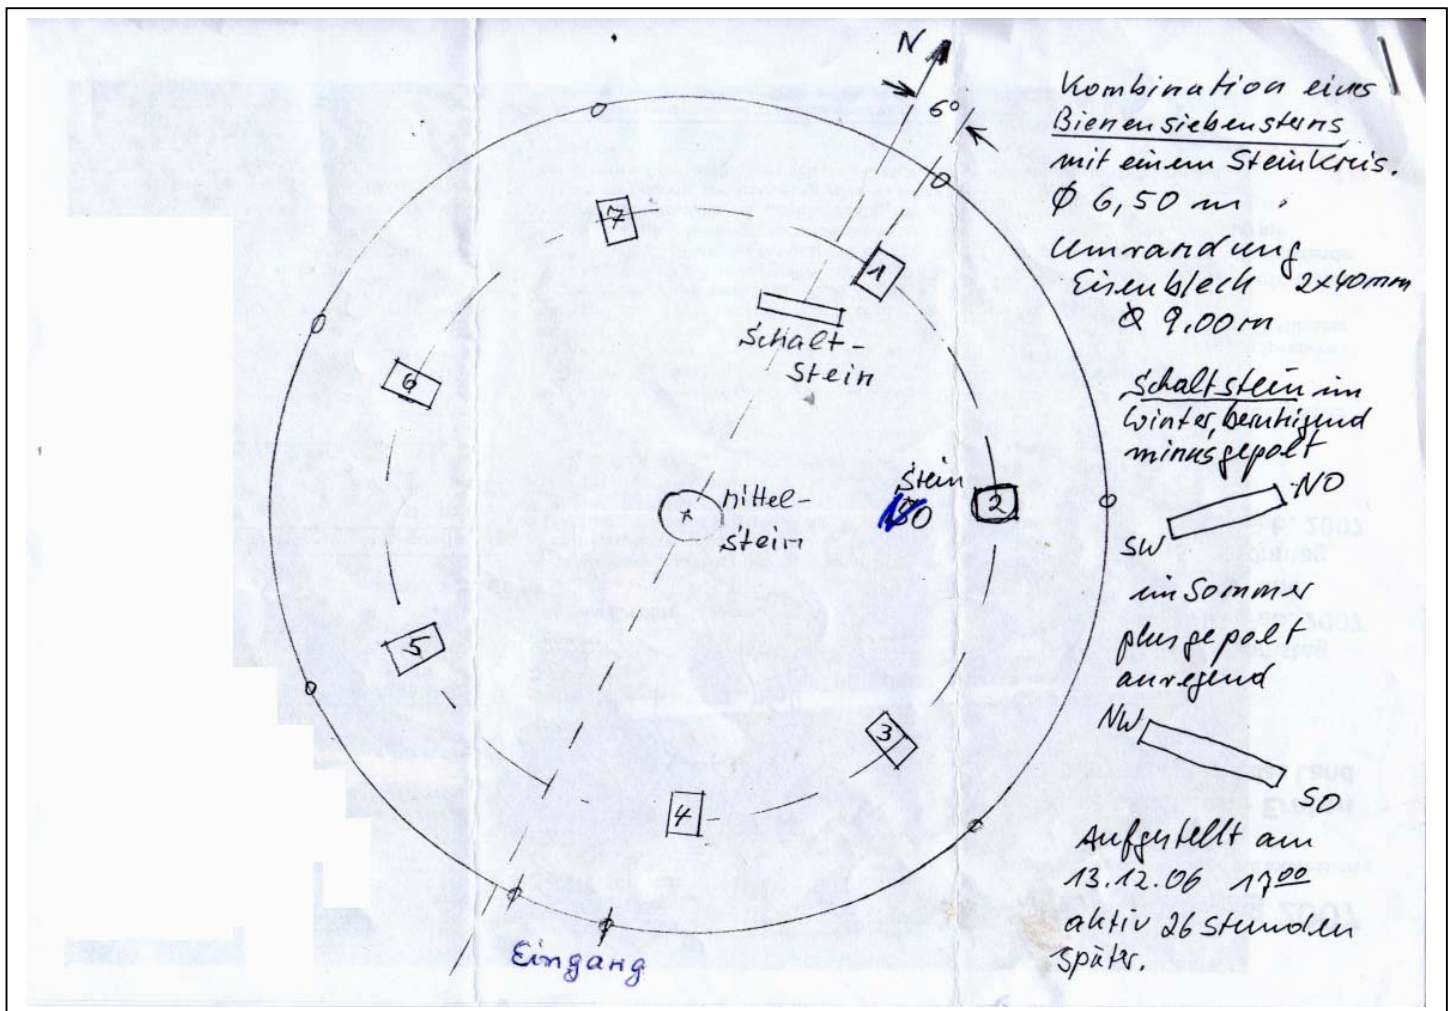 N
6°
7
1
Schalt-
stein
6
Mittel-
stein
Stein
SO
2
5
3
4
Eingang
Kombination eines
Bienensiebensterns
mit einem Steinkreis.
Ø 6,50 m
Umrandung
Eisenblech 2x40mm
Ø 9.00m
Schaltstein im
Winter, beruhigend
minusgepolt
NO
SW
im Sommer
plusgepolt
anregend
NW
SO
Aufgestellt am
13.12.06 17⁰⁰
aktiv 26 Stunden
später.